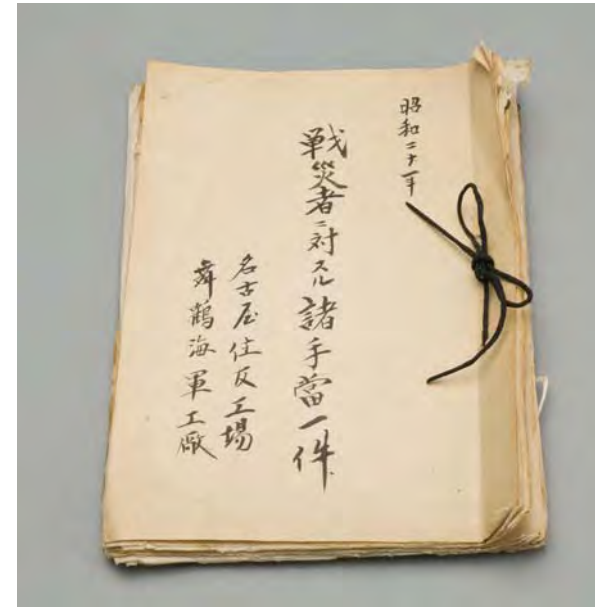 昭和二十一年
戦災者ニ対スル諸手當一件
名古屋住友工場
舞鶴海軍工廠